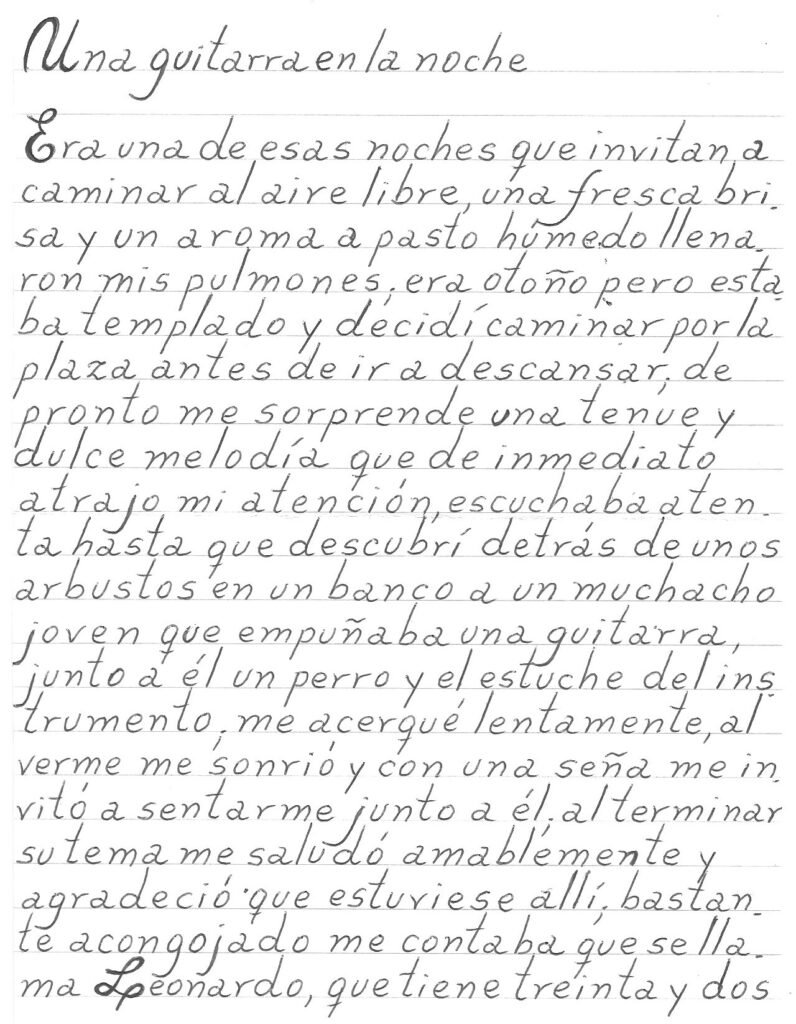 Una guitarra en la noche
Era una de esas noches que invitan a
caminar al aire libre, una fresca bri-
sa y un aroma a pasto húmedo llena-
ron mis pulmones; era otoño pero esta-
ba templado y decidí caminar por la
plaza antes de ir a descansar; de
pronto me sorprende una tenue y
dulce melodía que de inmediato
atrajo mi atención, escuchaba aten-
ta hasta que descubrí detrás de unos
arbustos en un banco a un muchacho
joven que empuñaba una guitarra,
junto a él un perro y el estuche del ins-
trumento; me acerqué lentamente, al
verme me sonrió y con una seña me in-
vitó a sentarme junto a él. al terminar
su tema me saludó amablemente y
agradeció que estuviese allí; bastan-
te acongojado me contaba que se lla-
ma Leonardo, que tiene treinta y dos